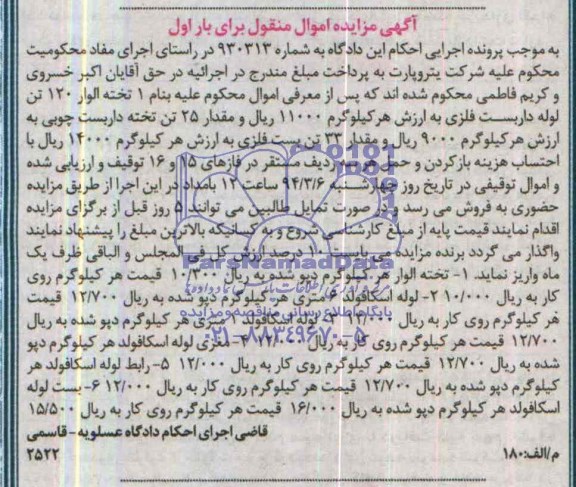 آگهی مزایده اموال منقول برای بار اول
به موجب پرونده اجرایی احکام این دادگاه به شماره ۹۳۰۳۱۳ در راستای اجرای مفاد محکومیت
محکوم علیه شرکت پتروپارت به پرداخت مبلغ مندرج در اجرائیه در حق آقایان اکبر خسروی
و کریم فاطمی محکوم شده اند که پس از معرفی اموال محکوم علیه بنام ۱ تخته الوار ۱۲۰ تن
لوله داربست فلزی به ارزش هر کیلوگرم ۱۱۰۰۰ ریال و مقدار ۲۵ تن تخته داربست چوبی به
ارزش هر کیلوگرم ۹۰۰۰ ریال و مقدار ۳۳ تن بست فلزی به ارزش هر کیلوگرم ۱۴۰۰۰ ریال با
احتساب هزینه بازکردن و حمل هر سه ردیف مستقر در فازهای ۱۵ و ۱۶ توقیف و ارزیابی شده
و اموال توقیفی در تاریخ روز چهارشنبه ۹۴/۳/۶ ساعت ۱۲ بامداد در این اجرا از طریق مزایده
حضوری به فروش می رسد و در صورت تمایل طالبین می توانند ۵ روز قبل از برگزای مزایده
اقدام نمایند قیمت پایه از مبلغ کارشناسی شروع و به کسانیکه بالاترین مبلغ را پیشنهاد نمایند
واگذار می گردد برنده مزایده می بایست ۱۰ درصد ارزش کل فی المجلس و الباقی ظرف یک
ماه واریز نماید. ۱- تخته الوار هر کیلوگرم دپو شده به ریال ۱۰/۳۰۰ قیمت هر کیلوگرم روی
کار به ریال ۱۰/۰۰۰ ۲- لوله اسکافولد ۶ متری هر کیلوگرم دپو شده به ریال ۱۲/۷۰۰ قیمت
هر کیلوگرم روی کار به ریال ۱۲/۰۰۰ ۳- لوله اسکافولد ۱ متری هر کیلوگرم دپو شده به ریال
۱۲/۷۰۰ قیمت هر کیلوگرم روی کار به ریال ۱۲/۰۰۰ ۴- مغزی لوله اسکافولد هر کیلوگرم دپو
شده به ریال ۱۲/۷۰۰ قیمت هر کیلوگرم روی کار به ریال ۱۲/۰۰۰ ۵- رابط لوله اسکافولد هر
کیلوگرم دپو شده به ریال ۱۲/۷۰۰ قیمت هر کیلوگرم روی کار به ریال ۱۲/۰۰۰ ۶- بست لوله
اسکافولد هر کیلوگرم دپو شده به ریال ۱۶/۰۰۰ قیمت هر کیلوگرم روی کار به ریال ۱۵/۵۰۰
قاضی اجرای احکام دادگاه عسلویه - قاسمی
م/الف: ۱۸۰
۲۵۲۲
ParsNamadData
پایگاه اطلاع رسانی مناقصه و مزایده
۰۲۱-۸۸۳۴۹۶۷۰-۵